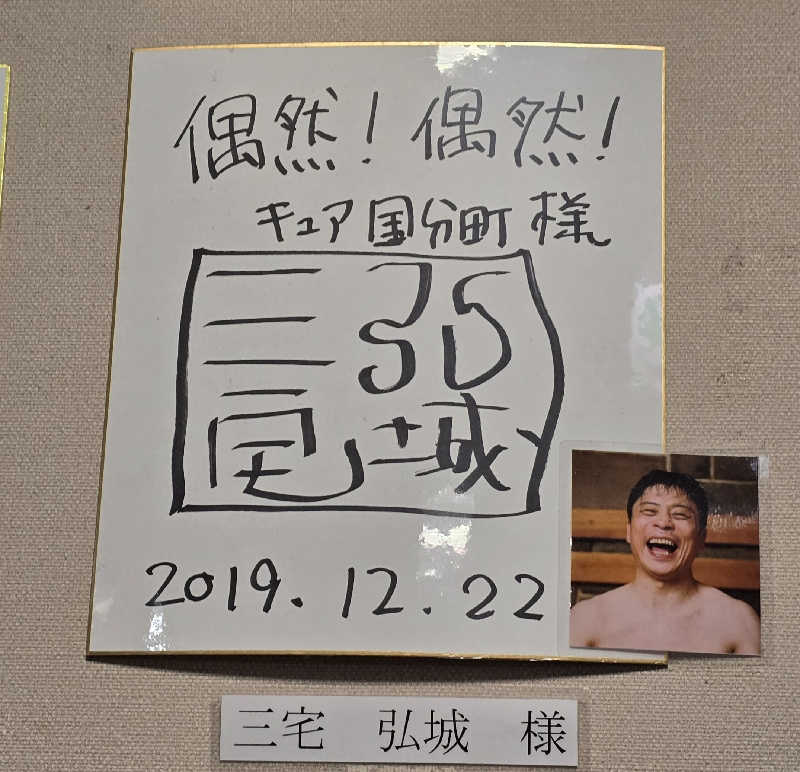 偶然！偶然！
キュア国分町様
三宅弘城
2019.12.22
三宅 弘城 様